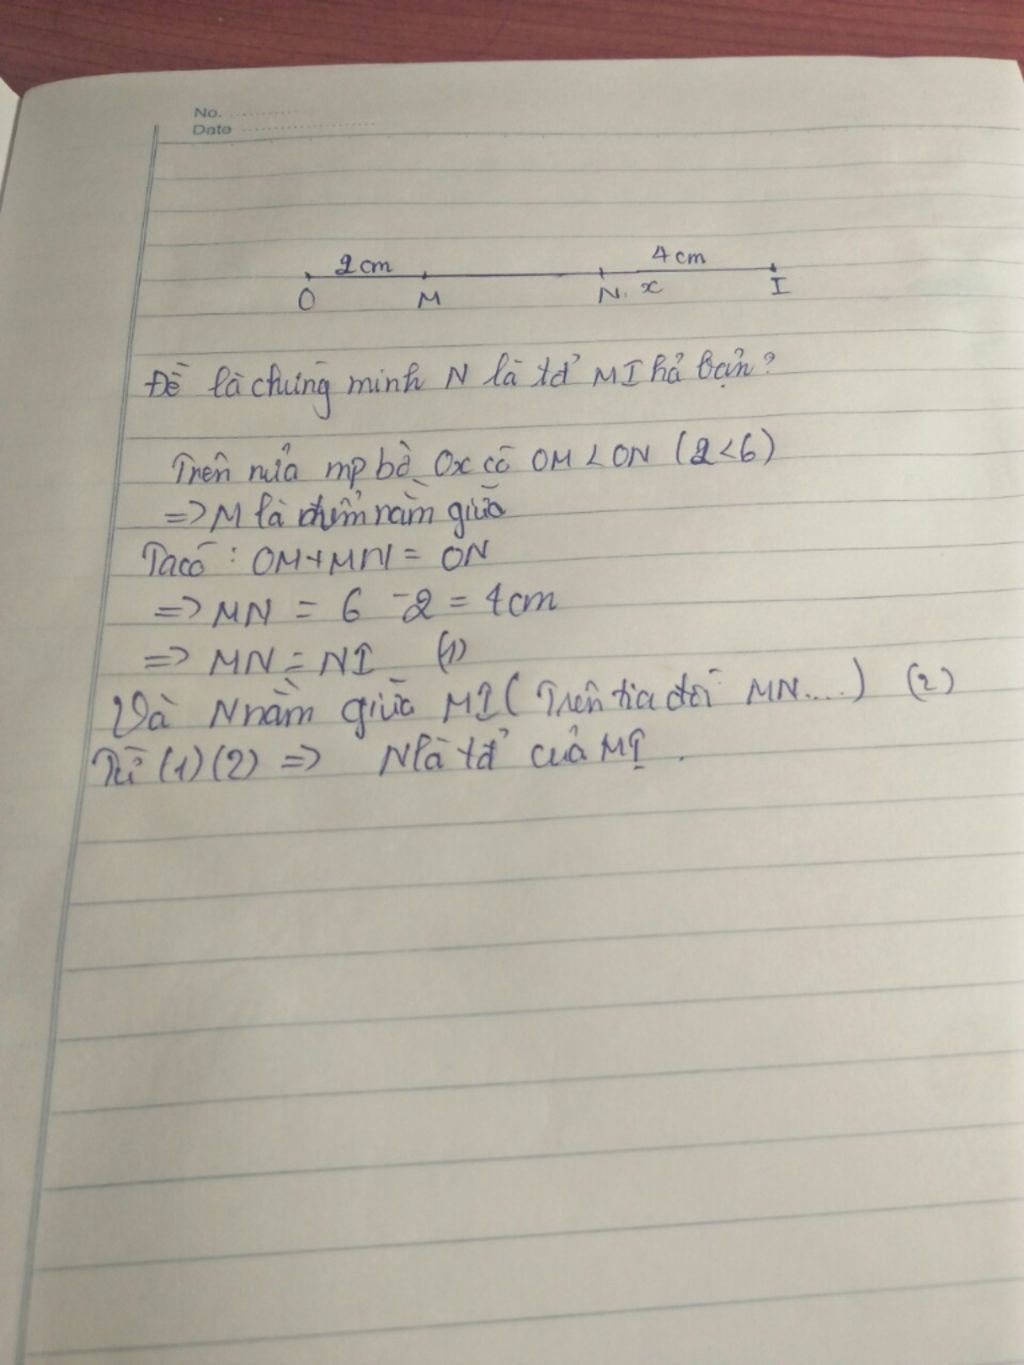 No. ............
Date ........................
2cm 4cm
O M N x I
Đề là chứng minh N là tđ MI hả bạn?
Trên nửa mp bờ Ox có OM < ON (2<6)
=> M là điểm nằm giữa
Ta có : OM+MN = ON
=> MN = 6 - 2 = 4cm
=> MN = NI (1)
Và N nằm giữa MI ( Trên tia đối MN....) (2)
Từ (1) (2) => N là tđ của MI .